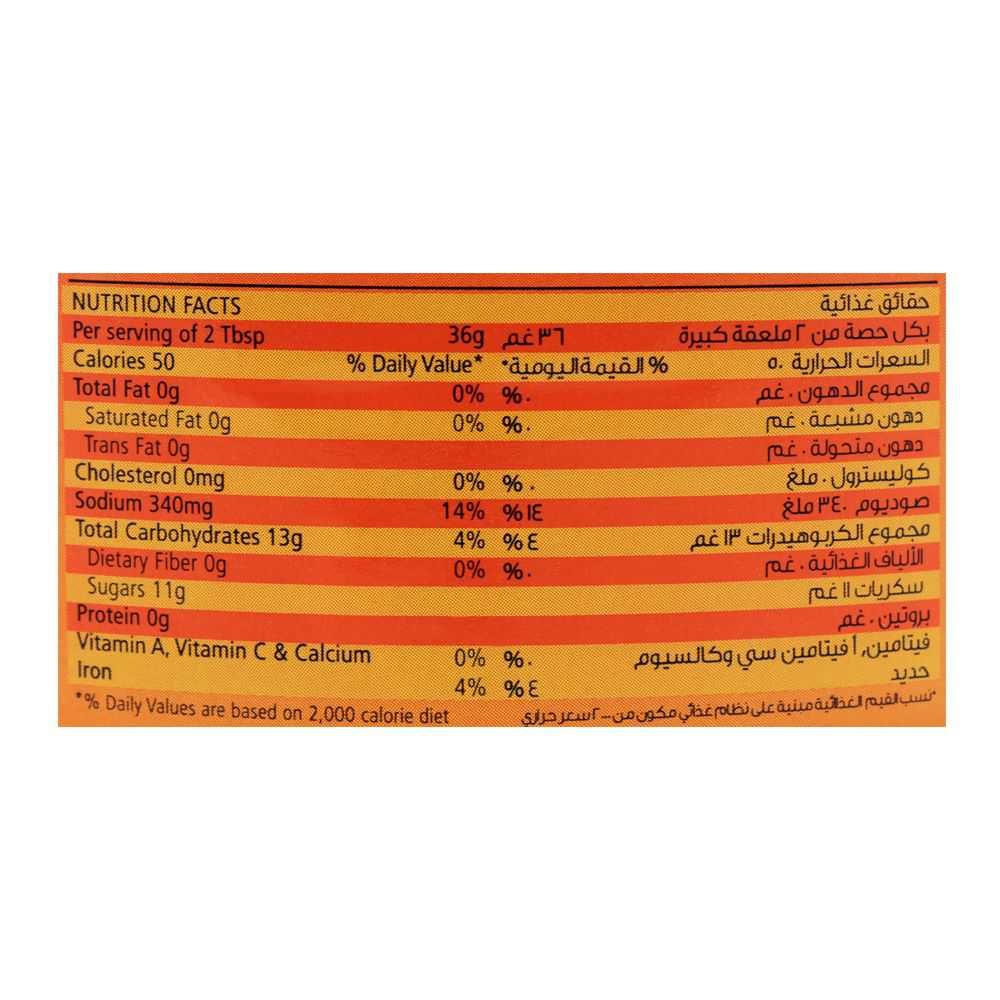 NUTRITION FACTS حقائق غذائية
Per serving of 2 Tbsp 36g ٣٦ غم بكل حصة من ٢ ملعقة كبيرة
Calories 50 % Daily Value* % القيمة اليومية* السعرات الحرارية ٥٠
Total Fat 0g 0% %٠ مجموع الدهون ٠ غم
Saturated Fat 0g 0% %٠ دهون مشبعة ٠ غم
Trans Fat 0g دهون متحولة ٠ غم
Cholesterol 0mg 0% %٠ كوليسترول ٠ ملغ
Sodium 340mg 14% %١٤ صوديوم ٣٤٠ ملغ
Total Carbohydrates 13g 4% %٤ مجموع الكربوهيدرات ١٣ غم
Dietary Fiber 0g 0% %٠ الألياف الغذائية ٠ غم
Sugars 11g سكريات ١١ غم
Protein 0g بروتين ٠ غم
Vitamin A, Vitamin C & Calcium 0% %٠ فيتامين أ، فيتامين سي وكالسيوم
Iron 4% %٤ حديد
*% Daily Values are based on 2,000 calorie diet *نسب القيم الغذائية مبنية على نظام غذائي مكون من ٢٠٠٠ سعر حراري